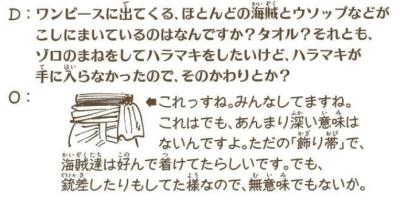 D：ワンピースに出てくる、ほとんどの海賊とウソップなどが
こしにまいているのはなんですか？タオル？それとも、
ゾロのまねをしてハラマキをしたいけど、ハラマキが
手に入らなかったので、そのかわりとか？
O：
←これっすね。みんなしてますね。
これはでも、あんまり深い意味は
ないんですよ。ただの「飾り帯」で、
海賊達は好んで着けてたらしいです。でも、
銃差したりもしてた様なので、無意味でもないか。